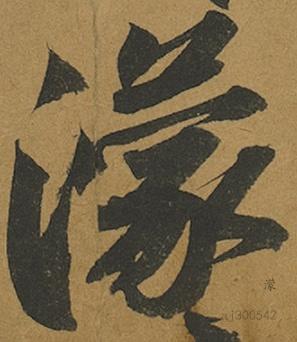 濛
濛
j300542